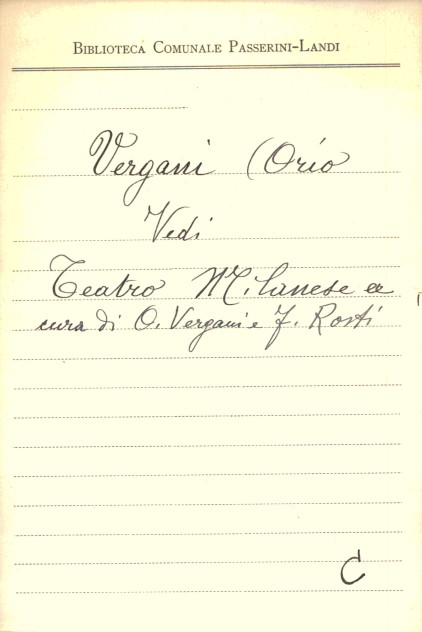 BIBLIOTECA COMUNALE PASSERINI-LANDI
Vergani (Orio
Vedi
Teatro Milanese a
cura di O. Vergani e F. Rosti
C